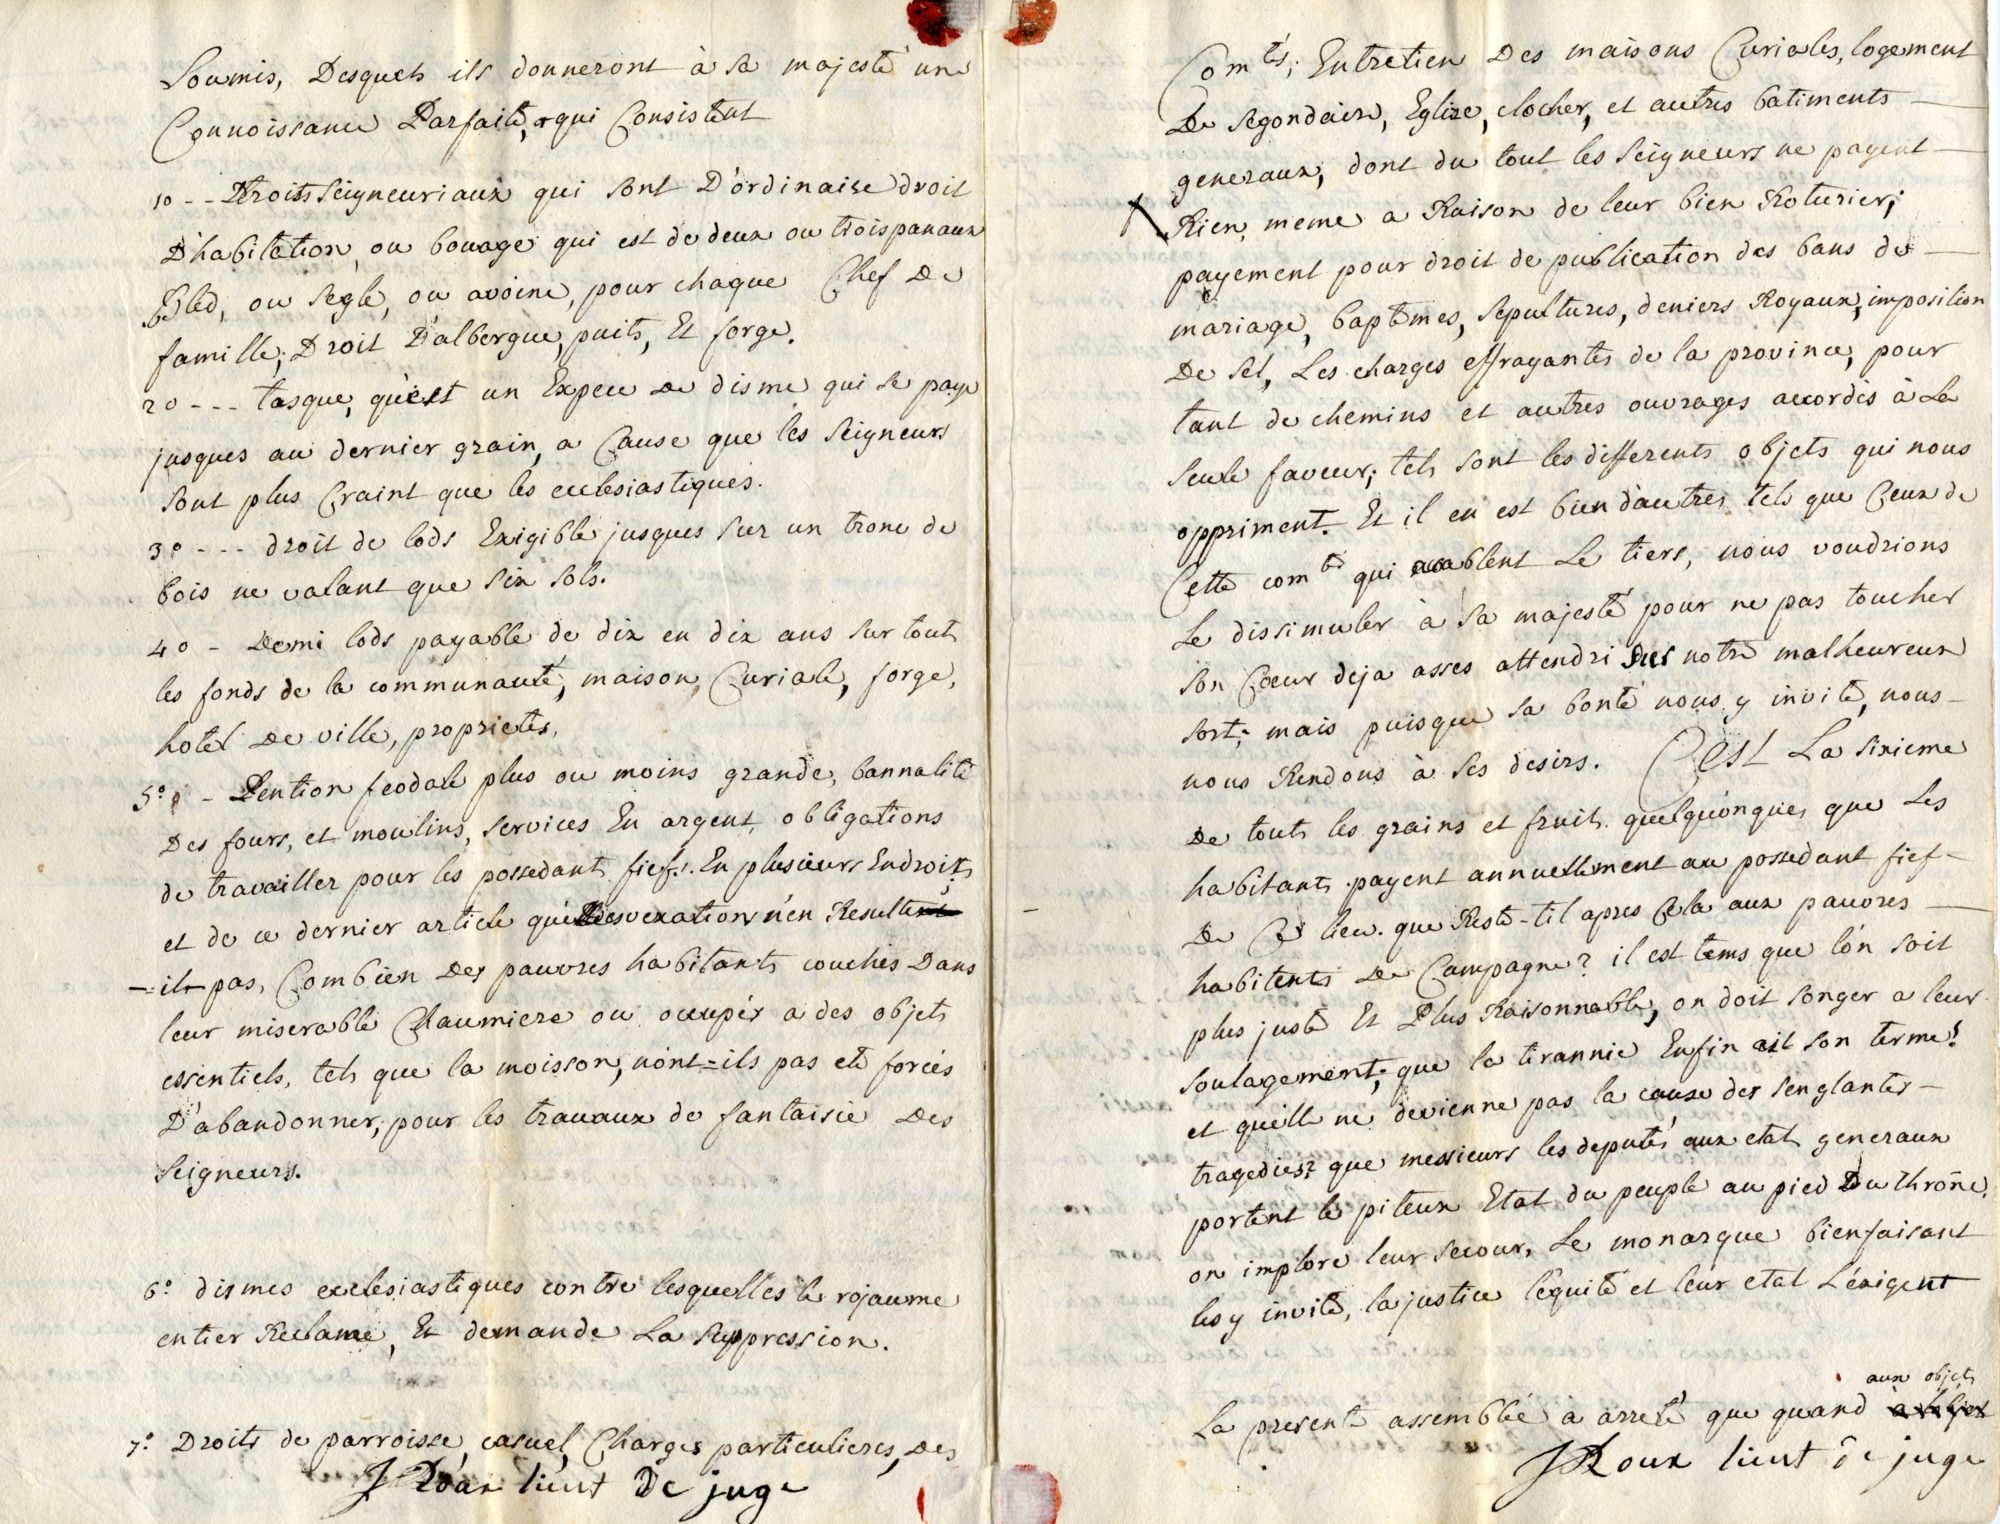 Soumis, Desquels ils donneront à sa majesté une
Connoissance Parfaite, & qui Consistent
1o -- Droits seigneuriaux qui sont D'ordinaire droit
D'habitation, ou bouage qui est de deux ou trois panaux
Bled, ou segle, ou avoine, pour chaque Chef De
famille; Droit D'albergue, puits, Et forge.
2o --- tasque, qu'est un Expece De disme qui se paye
jusques au dernier grain, a Cause que les seigneurs
sont plus Craint que les ecclesiastiques.
3o --- droit de lods Exigible jusques sur un tronc de
bois ne valant que six sols.
4o - Demi lods payable de dix en dix ans sur touts
les fonds de la communauté, maison, Curiale, forge,
hotel De ville, proprietés,
5o - Pention feodale plus ou moins grande, bannalité
Des fours, et moulins, services En argent, obligations
de travailler pour les possedants fiefs. En plusieurs Endroits
et de ce dernier article qu'elles vexations n'en Resulte
-=il-pas, Combien Des pauvres habitants couchés Dans
leur miserable Chaumiere ou occupés a des objets
essentiels, tels que la moisson, n'ont=ils pas eté forcés
D'abandonner, pour les travaux de fantaisie Des
seigneurs.
6o dismes ecclesiastiques contre lesquelles le rojaume
entier Reclame, Et demande La suppression.
7o Droits de parroisse, casuel, Charges particulieres, Des
J Roux lieut De juge
Comtés; Entretien Des maisons Curiales, logement
De segondaire, Eglise, clocher, et autres batiments —
generaux, dont du tout les seigneurs ne payent —
Rien, meme a Raison de leur bien Roturier;
payement pour droit de publication des bans de —
mariage, baptêmes, sepultures, deniers Royaux, imposition
De sel, Les charges effrayantes de la province, pour
tant de chemins et autres ouvrages accordés à La
seule faveur; tels sont les differents objets qui nous
oppriment. Et il en est bien d'autres, tels que Ceux de
Cette comté qui accablent Le tiers, nous voudrions
Le dissimuler à sa majesté pour ne pas toucher
son Cœur deja asses attendri sur notre malheureux
sort; mais puisque sa bonté nous y invite, nous-
nous Rendons à ses desirs. C'est La sixieme
De touts les grains et fruits quelqu'onques, que Les
habitants payent annuellement au possedant fief-
De Ce lieu. que Reste-til apres Cela aux pauvres —
habitents De Campagne? il est tems que l'on soit
plus juste Et Plus Raisonnable, on doit songer a leur
soulagement; que la tirannie Enfin ait son terme!
et qu'elle ne devienne pas la cause des senglantes —
tragedies? que messieurs les deputés aux etats generaux
portent le piteux Etat du peuple au pied Du thrône,
on implore leur secour, Le monarque bienfaisant
les y invite, la justice l'equité et leur etat L'exigent
aux objets
La presente assemblée a arreté que quand
J Roux lieut De juge